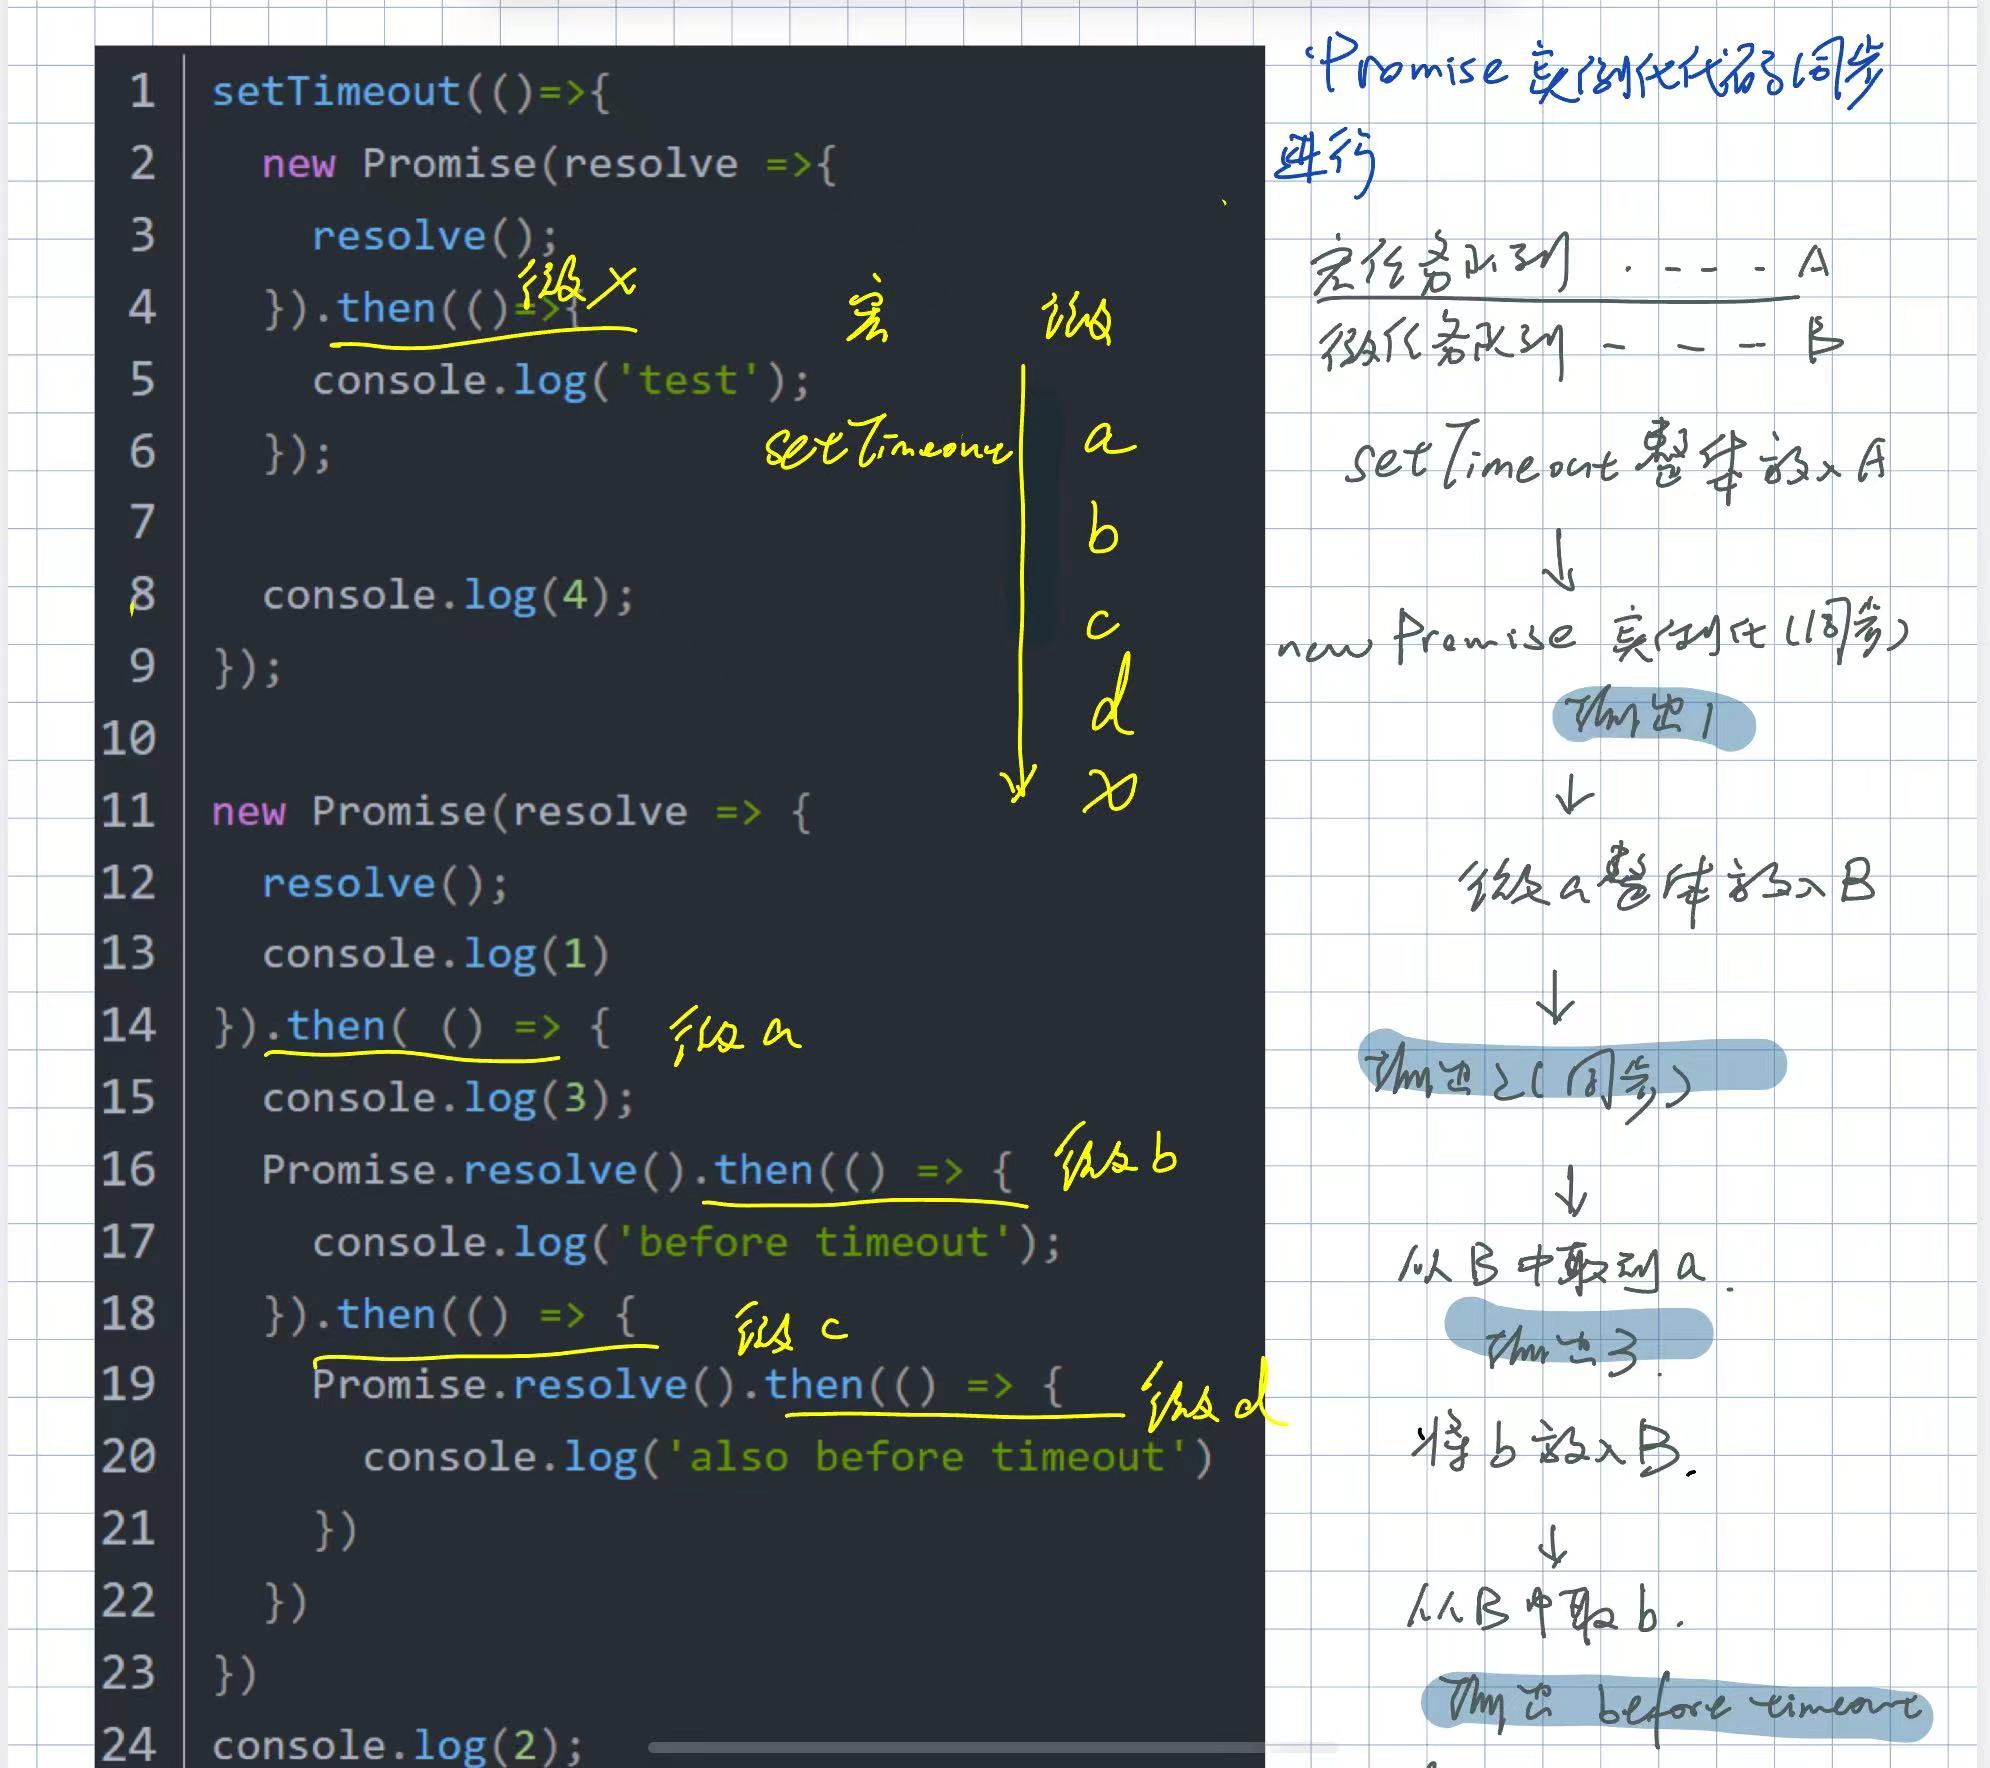 1 setTimeout(()=>{
2 new Promise(resolve =>{
3 resolve();
4 }).then(()=>{
微x
5 console.log('test');
6 });
7
8 console.log(4);
9 });
10
11 new Promise(resolve => {
12 resolve();
13 console.log(1)
14 }).then( () => {
微a
15 console.log(3);
16 Promise.resolve().then(() => {
微b
17 console.log('before timeout');
18 }).then(() => {
微c
19 Promise.resolve().then(() => {
微d
20 console.log('also before timeout')
21 })
22 })
23 })
24 console.log(2);
宏 微
setTimeout a
b
c
d
x
Promise 实例化代码同步
进行
宏任务队列 ---- A
微任务队列 --- B
setTimeout 整体放入A
↓
new Promise 实例化(同步)
输出1
↓
微a整体放入B
↓
输出2(同步)
↓
从B中取到a.
输出3.
将b放入B.
↓
从B中取b.
输出 before timeout